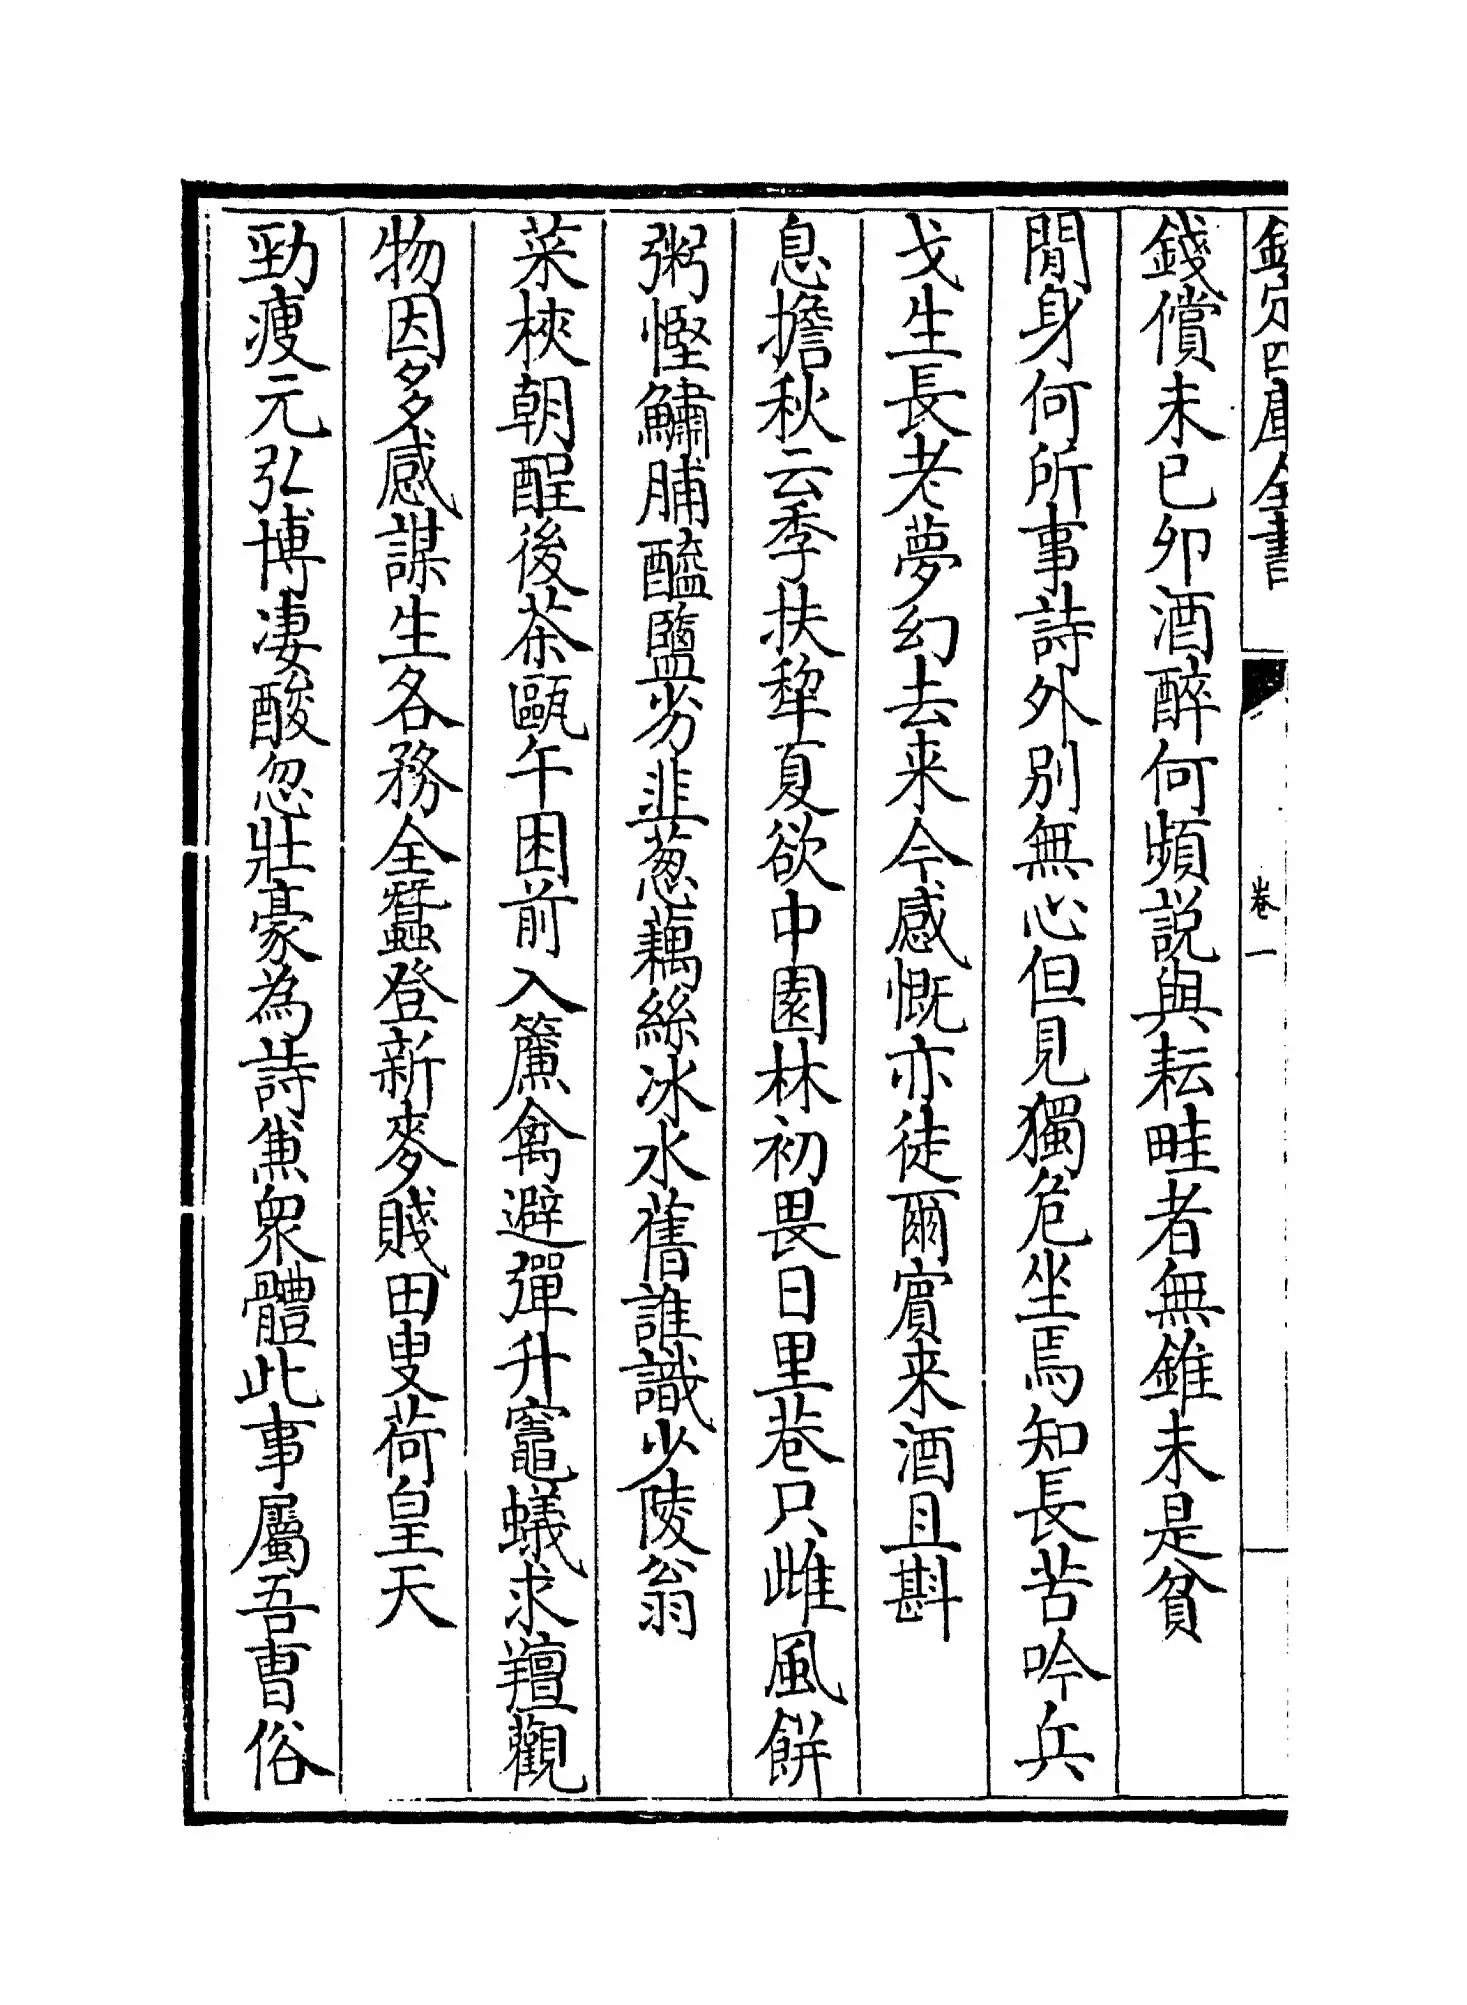 欽定四庫全書
卷一
錢償未已卯酒醉何頻説與耘畦者無錐未是貧
閒身何所事詩外别無心但見獨危坐焉知長苦吟兵
戈生長老夢幻去来今感慨亦徒爾賔来酒且斟
息擔秋云季扶犂夏欲中園林初畏日里巷只雌風餅
粥慳鱐脯醯鹽劣韭葱藕絲冰水舊誰識少陵翁
菜梜朝酲後茶甌午困前入簾禽避彈升竈蟻求羶觀
物因多感謀生各務全蠶登新麥賤田叟荷皇天
勁瘦元弘博凄酸忽壯豪為詩焦衆體此事屬吾曹俗